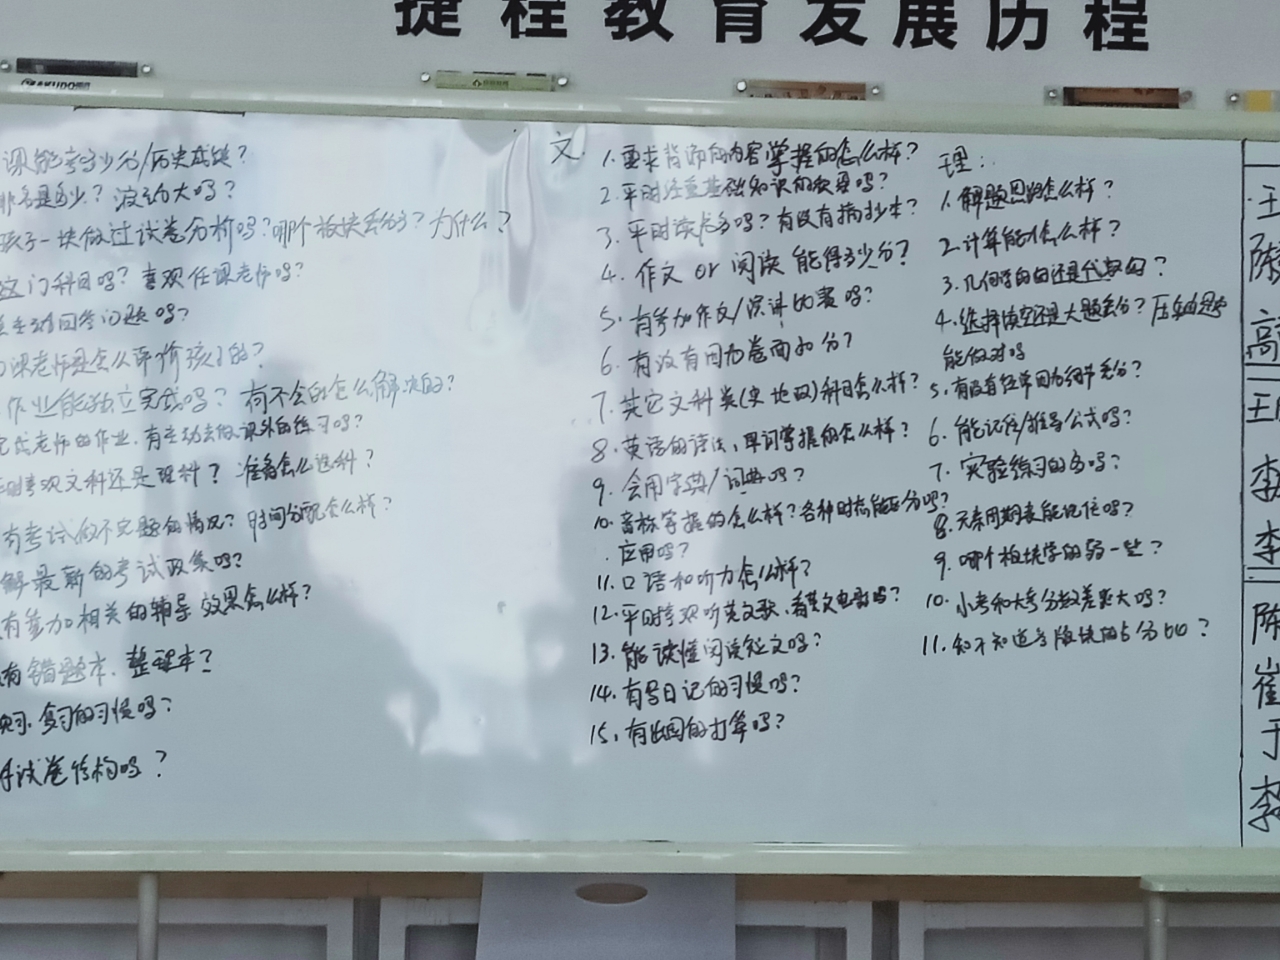 捷程教育发展历程
课能考多少分/历史成绩?
排名是多少?波动大吗?
孩子一块做过试卷分析吗?哪个板块丢分?为什么?
这门科目吗?喜欢任课老师吗?
主动回答问题吗?
课老师是怎么评价孩子的?
作业能独立完成吗?有不会的怎么解决的?
完成老师的作业,有主动去做课外的练习吗?
喜欢文科还是理科?准备怎么选科?
有考试做不完题的情况?时间分配怎么样?
解最新的考试政策吗?
有参加相关的辅导 效果怎么样?
有错题本、整理本?
预习、复习的习惯吗?
试卷结构吗?
文:
1. 要求背诵的内容掌握的怎么样?
2. 平时注重基础知识的积累吗?
3. 平时读书多吗?有没有摘抄本?
4. 作文 or 阅读 能得多少分?
5. 有参加作文/演讲比赛吗?
6. 有没有因为卷面扣分?
7. 其它文科类(史 地 政)科目怎么样?
8. 英语的语法、单词掌握的怎么样?
9. 会用字典/词典吗?
10. 音标掌握的怎么样?各种时态能区分吗?
应用吗?
11. 口语和听力怎么样?
12. 平时喜欢听英文歌、看英文电影吗?
13. 能读懂阅读短文吗?
14. 有写日记的习惯吗?
15. 有出国的打算吗?
理:
1. 解题思路怎么样?
2. 计算能力怎么样?
3. 几何学的好还是代数好?
4. 选择填空还是大题丢分?压轴题
能做对吗
5. 有没有经常因为细节丢分?
6. 能记住/推导公式吗?
7. 实验练习的多吗?
8. 元素周期表能记住吗?
9. 哪个板块学的弱一些?
10. 小考和大考分数差距大吗?
11. 知不知道各版块的占分比?
王
陈
高
王
李
李
陈
崔
于
李